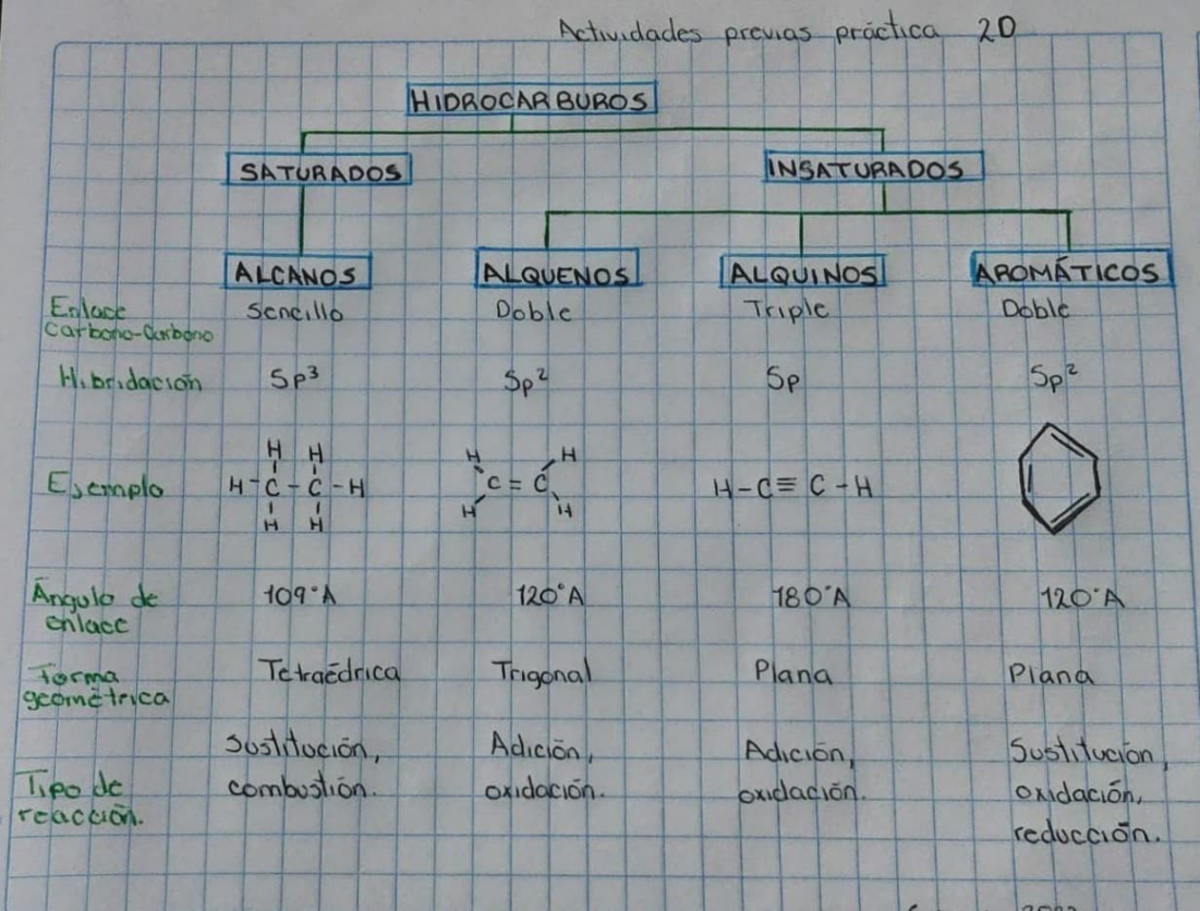 Actividades previas práctica 20
HIDROCARBUROS
SATURADOS INSATURADOS
ALCANOS ALQUENOS ALQUINOS AROMÁTICOS
Enlace Sencillo Doble Triple Doble
Carbono-Carbono
Hibridación Sp³ Sp² Sp Sp²
H H H H
Ejemplo H-C-C-H C=C H-C≡C-H
H H H H
Ángulo de 109°A 120°A 180°A 120°A
enlace
Forma Tetraédrica Trigonal Plana Plana
geométrica
Sustitución, Adición, Adición, Sustitución,
Tipo de combustión. oxidación. oxidación. oxidación,
reacción. reducción.